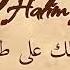 Halim
لك على ط